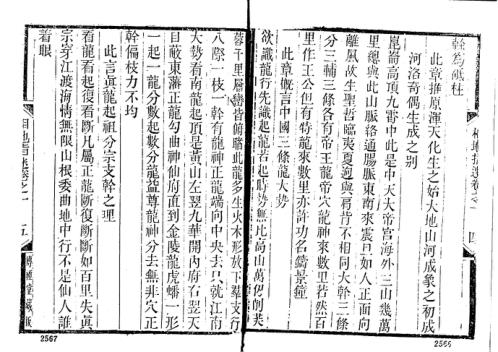 幹為砥柱
此章推原渾天化生之始大地山河成象之初成
河洛奇偶生成之別
崑崙高頂九霄中此是中天大帝宮海外三山幾萬
里總與此山脈絡通腸脈東南來震旦如人正面向
離風故生聖哲臨夷夏迥與肩背不相同大幹三條
分三輔三條各有帝王龍帝穴龍神來數里若然百
里作王公但有特龍來數里亦許功名鑄景鐘
此章概言中國三條龍大勢
欲識龍行先識起龍若起時勢無比高山萬仞削芙
相地指迷卷之一 四
2566
相地指迷卷之一 五
蓉千里層巒皆俯聽此龍多生火木形放下羣支行
八際一枝一幹有龍神正龍端向中央去只就江南
大勢看南龍起頂是黃山左翌九華開內府右翌天
目蔽東藩正龍勾曲神仙府直到金陵龍虎蟠一形
一起一龍分數起數分龍益尊龍神分去無非穴正
幹偏枝力不均
此言真龍起祖分宗支幹之理
看龍看起復看斷凡屬正龍斷復斷斷如百里失真
宗穿江渡海情無限山根委曲地中行不是仙人誰
着眼
2567